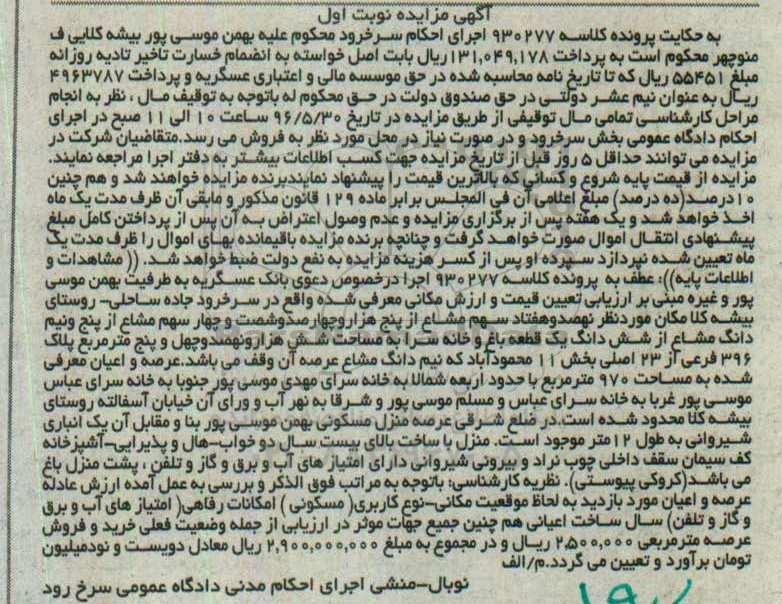 آگهی مزایده نوبت اول
به حکایت پرونده کلاسه ۹۳۰۲۷۷ اجرای احکام سرخرود محکوم علیه بهمن موسی پور بیشه کلایی ف
منوچهر محکوم است به پرداخت ۱۳۱,۰۴۹,۱۷۸ ریال بابت اصل خواسته به انضمام خسارت تاخیر تادیه روزانه
مبلغ ۵۵۴۵۱ ریال که تا تاریخ نامه محاسبه شده در حق موسسه مالی و اعتباری عسگریه و پرداخت ۴۹۶۳۷۸۷
ریال به عنوان نیم عشر دولتی در حق صندوق دولت در حق محکوم له باتوجه به توقیف مال ، نظر به انجام
مراحل کارشناسی تمامی مال توقیفی از طریق مزایده در تاریخ ۹۶/۵/۳۰ ساعت ۱۰ الی ۱۱ صبح در اجرای
احکام دادگاه عمومی بخش سرخرود و در صورت نیاز در محل مورد نظر به فروش می رسد.متقاضیان شرکت در
مزایده می توانند حداقل ۵ روز قبل از تاریخ مزایده جهت کسب اطلاعات بیشتر به دفتر اجرا مراجعه نمایند.
مزایده از قیمت پایه شروع و کسانی که بالاترین قیمت را پیشنهاد نمایندبرنده مزایده خواهند شد و هم چنین
۱۰درصد(ده درصد) مبلغ اعلامی آن فی المجلس برابر ماده ۱۲۹ قانون مذکور و مابقی آن ظرف مدت یک ماه
اخذ خواهد شد و یک هفته پس از برگزاری مزایده و عدم وصول اعتراض به آن پس از پرداختن کامل مبلغ
پیشنهادی انتقال اموال صورت خواهد گرفت و چنانچه برنده مزایده باقیمانده بهای اموال را ظرف مدت یک
ماه تعیین شده نپردازد سپرده او پس از کسر هزینه مزایده به نفع دولت ضبط خواهد شد. (( مشاهدات و
اطلاعات پایه)): عطف به پرونده کلاسه ۹۳۰۲۷۷ اجرا درخصوص دعوی بانک عسگریه به طرفیت بهمن موسی
پور و غیره مبنی بر ارزیابی تعیین قیمت و ارزش مکانی معرفی شده واقع در سرخرود جاده ساحلی- روستای
بیشه کلا مکان موردنظر نهصدوهفتاد سهم مشاع از پنج هزاروچهارصدوشصت و چهار سهم مشاع از پنج ونیم
دانگ مشاع از شش دانگ یک قطعه باغ و خانه سرا به مساحت شش هزارونهصدوچهل و پنج مترمربع پلاک
۳۹۶ فرعی از ۲۳ اصلی بخش ۱۱ محمودآباد که نیم دانگ مشاع عرصه آن وقف می باشد.عرصه و اعیان معرفی
شده به مساحت ۹۷۰ مترمربع با حدود اربعه شمالا به خانه سرای مهدی موسی پور جنوبا به خانه سرای عباس
موسی پور غربا به خانه سرای عباس و مسلم موسی پور و شرقا به نهر آب و ورای آن خیابان آسفالته روستای
بیشه کلا محدود شده است.در ضلع شرقی عرصه منزل مسکونی بهمن موسی پور بنا و مقابل آن یک انباری
شیروانی به طول ۱۲متر موجود است. منزل با ساخت بالای بیست سال دو خواب-هال و پذیرایی-آشپزخانه
کف سیمان سقف داخلی چوب نراد و بیرونی شیروانی دارای امتیاز های آب و برق و گاز و تلفن ، پشت منزل باغ
می باشد(کروکی پیوستی). نظریه کارشناسی: باتوجه به مراتب فوق الذکر و بررسی به عمل آمده ارزش عادله
عرصه و اعیان مورد بازدید به لحاظ موقعیت مکانی-نوع کاربری( مسکونی ) امکانات رفاهی( امتیاز های آب و برق
و گاز و تلفن) سال ساخت اعیانی هم چنین جمیع جهات موثر در ارزیابی از جمله وضعیت فعلی خرید و فروش
عرصه مترمربعی ۲,۵۰۰,۰۰۰ ریال و در مجموع به مبلغ ۲,۹۰۰,۰۰۰,۰۰۰ ریال معادل دویست و نودمیلیون
تومان برآورد و تعیین می گردد.م/الف
نوبال-منشی اجرای احکام مدنی دادگاه عمومی سرخ رود